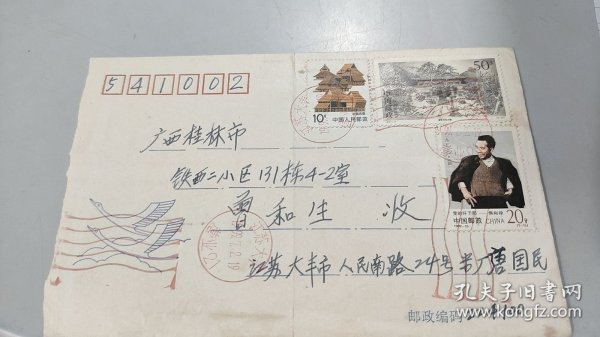 541002
广西桂林市
铁西二小区131栋4-2室
曾和生 收
江苏大丰市人民南路24号 唐国民
邮政编码
10分
中国人民邮政
50
20分
中国邮政 CHINA
孔夫子旧书网
www.kongfz.com